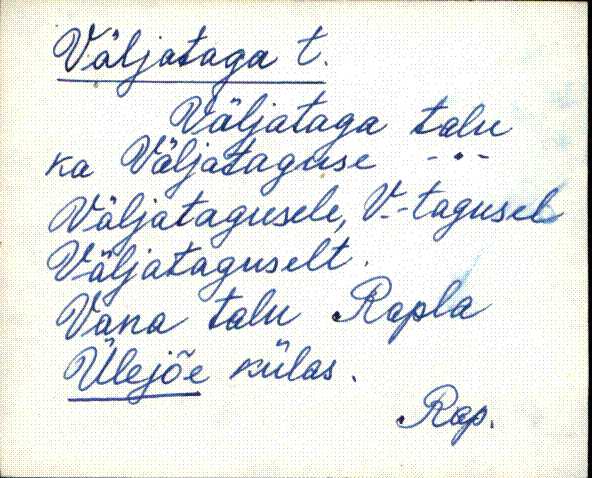 Väljataga t.
Väljataga talu
ka Väljataguse -"-
Väljatagusele, V.-tagusel
Väljataguselt.
Vana talu Rapla
Ülejõe külas.
Rap.